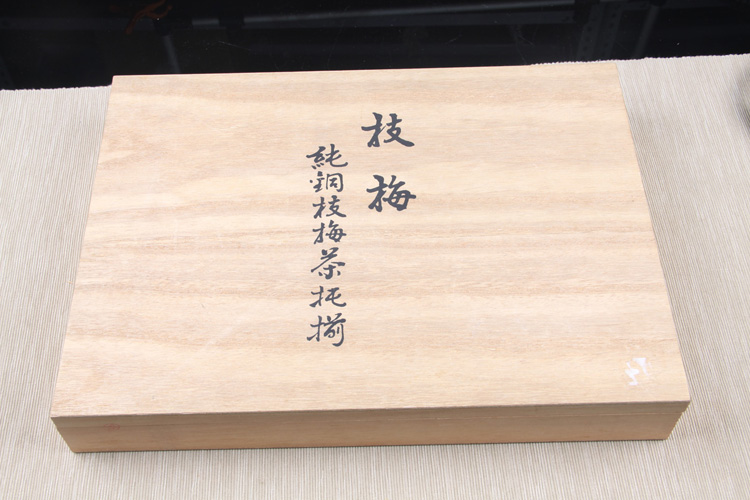 枝梅
純銅枝梅茶托揃